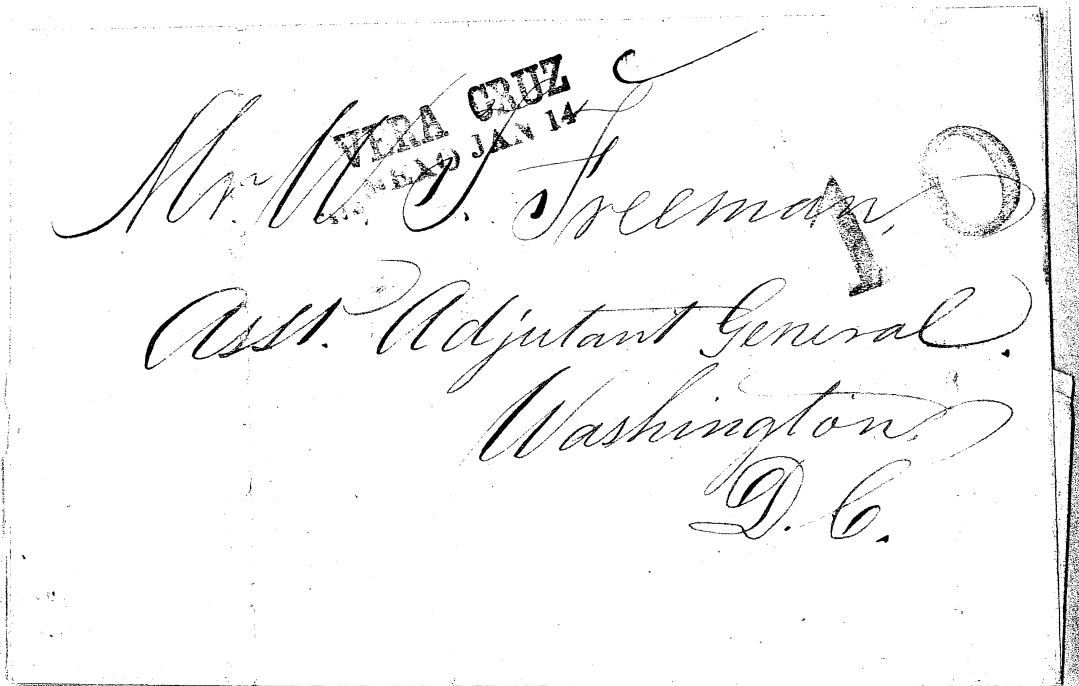 VERA CRUZ
(MEX) JAN 14
10
Mr. W. G. Freeman,
Asst. Adjutant General.
Washington,
D. C.